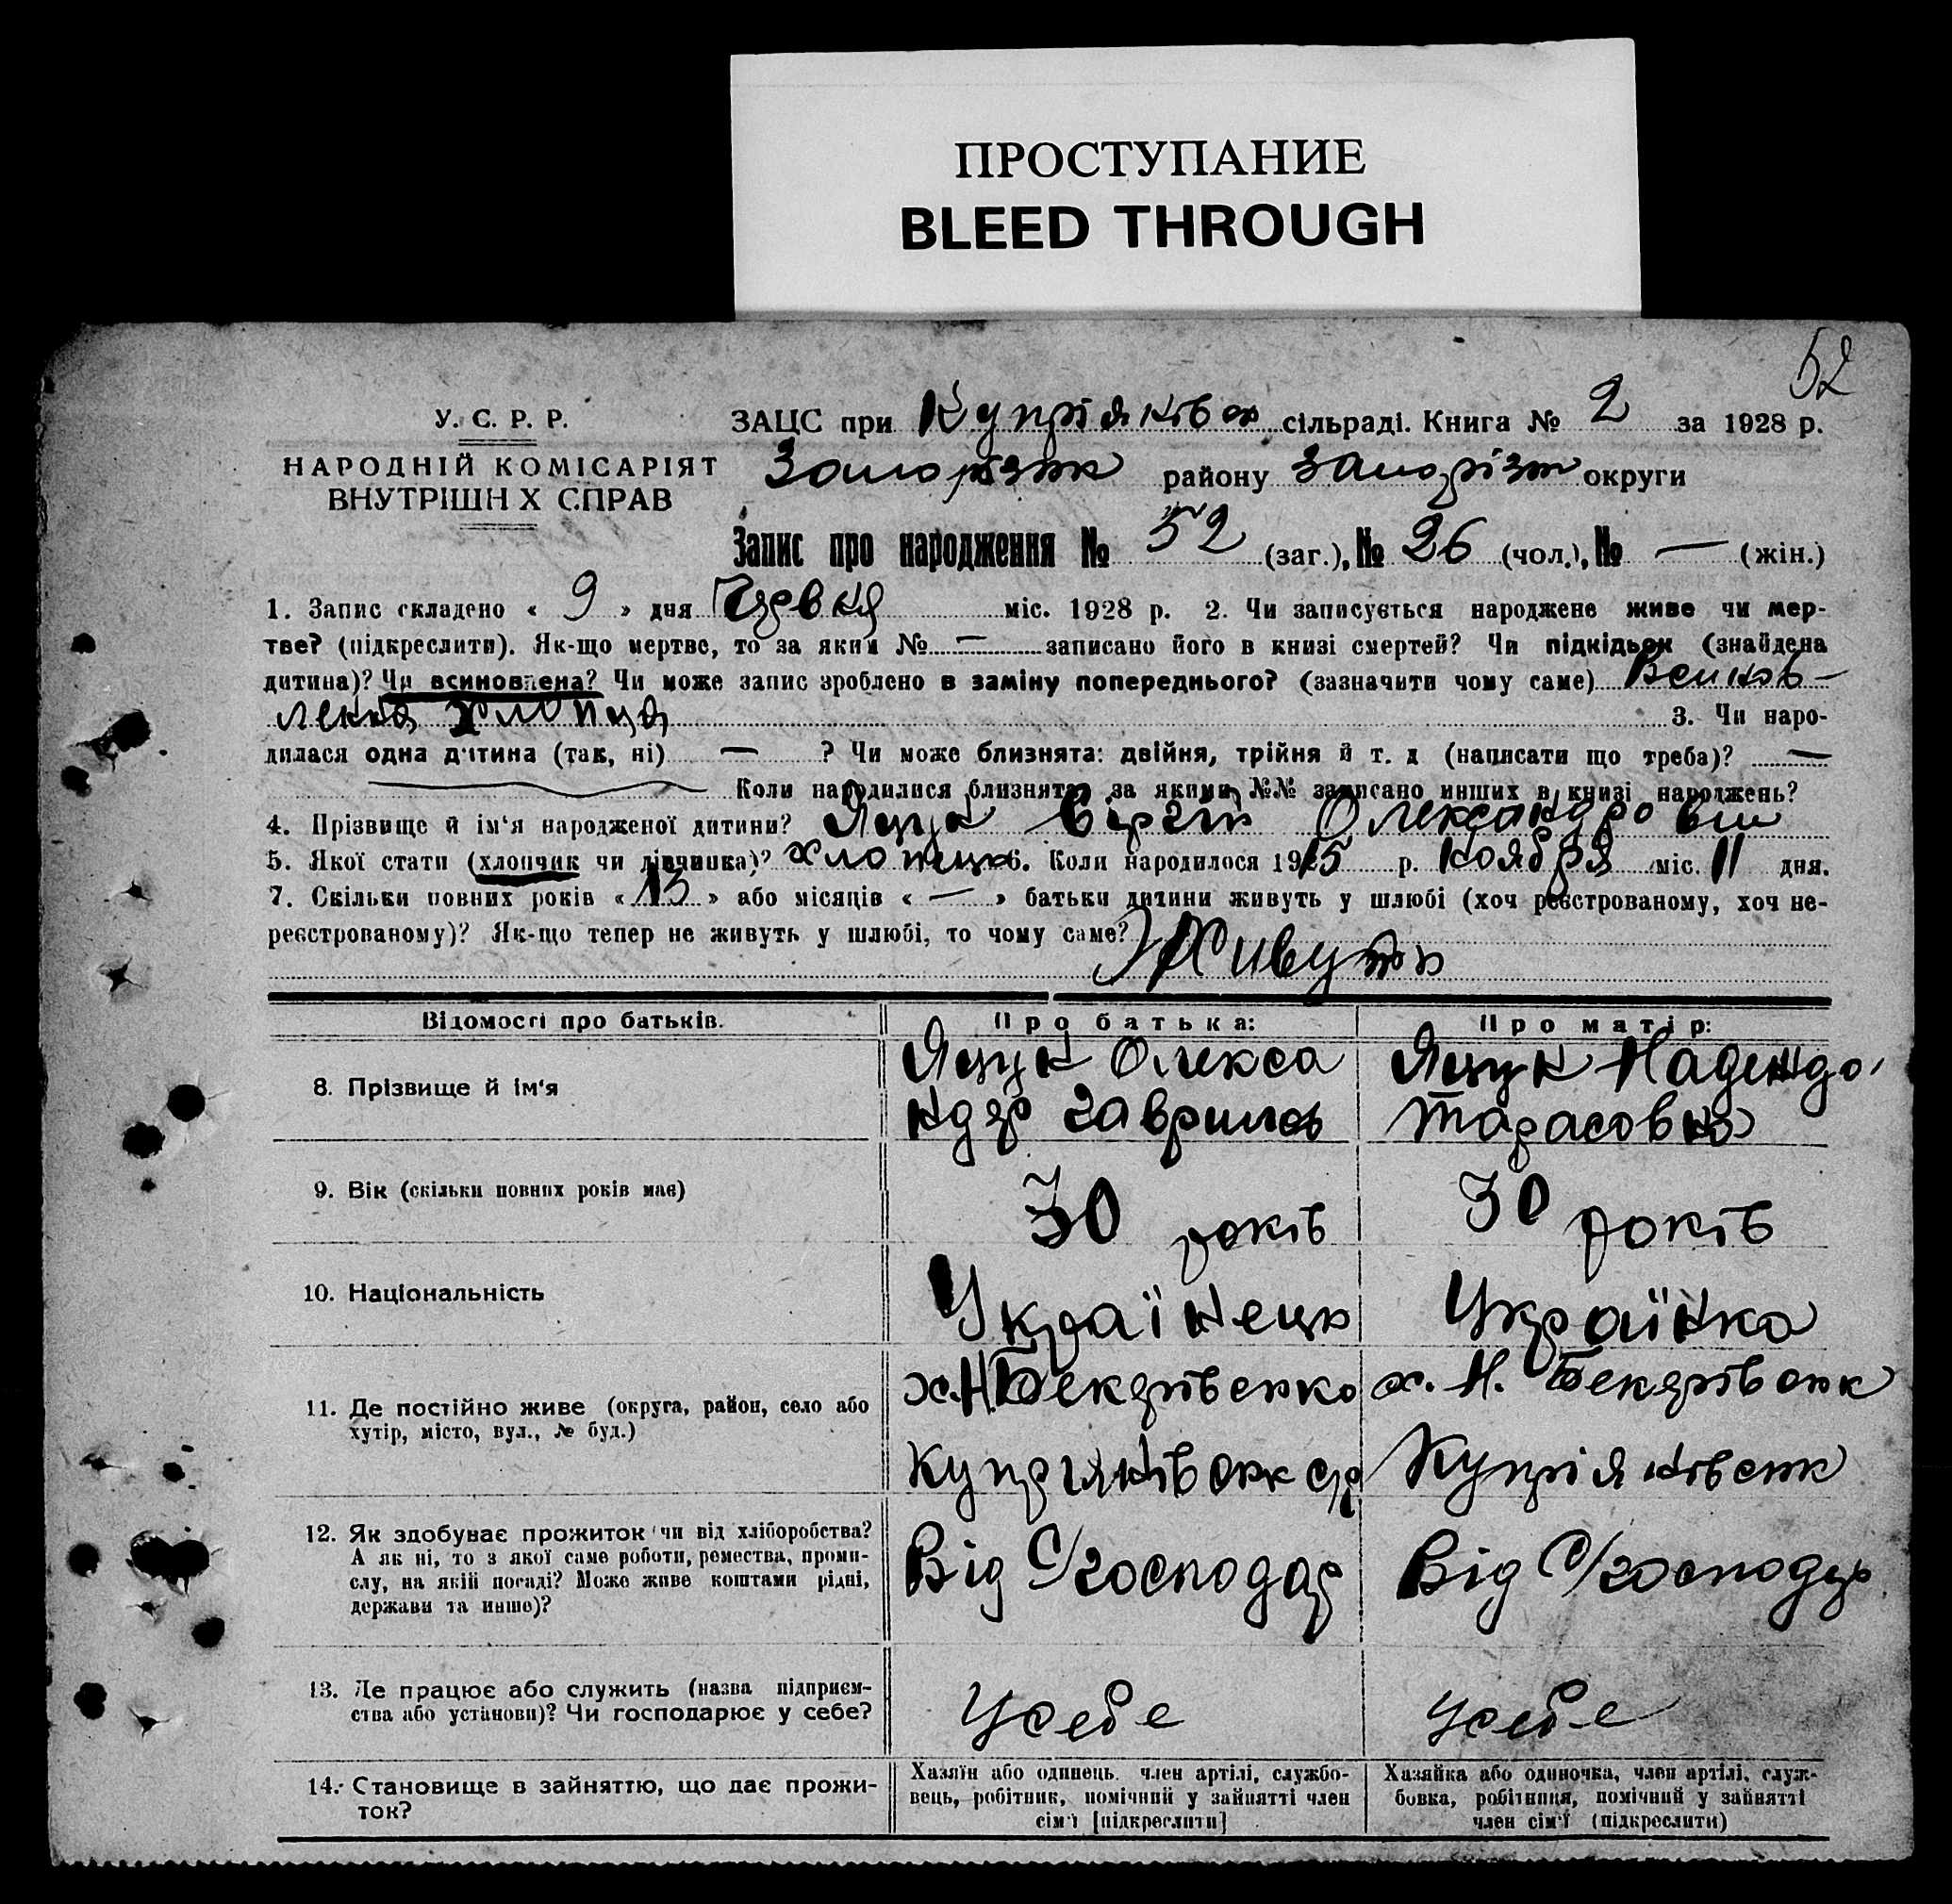 ПРОСТУПАНИЕ
BLEED THROUGH
52
У. С. Р. Р.
НАРОДНІЙ КОМІСАРІЯТ
ВНУТРІШН Х СПРАВ
ЗАЦС при Купріянківск сільраді. Книга № 2 за 1928 р.
району округи
Запис про народження № 52 (заг.), № 26 (чол.), № — (жін.)
1. Запис складено « 9 » дня міс. 1928 р. 2. Чи записується народжене живе чи мер-
тве? (підкреслити). Як-що мертве, то за яким № — записано його в книзі смертей? Чи підкідьок (знайдена
дитина)? Чи всиновлена? Чи може запис зроблено в заміну попереднього? (зазначити чому саме)
хлопця 3. Чи наро-
дилася одна дитина (так, ні) — ? Чи може близнята: двійня, трійня й т. д (написати що треба)? —
Коли народилися близнята, за якими №№ записано инших в книзі народжень?
4. Прізвище й ім'я народженої дитини? Яцук Олександрович
5. Якої стати (хлопчик чи дівчинка)? хлопець 6. Коли народилося 1915 р. ноября міс. 11 дня.
7. Скільки повних років « 13 » або місяців « — » батьки дитини живуть у шлюбі (хоч реєстрованому, хоч не-
реєстрованому)? Як-що тепер не живуть у шлюбі, то чому саме? Живуть
Відомості про батьків. Про батька: Про матір:
8. Прізвище й ім'я
Яцук Олекса
ндр Гаврилов
Яцук
Тарасовна
9. Вік (скільки повних років має) 30 років 30 років
10. Національність Українець Українка
11. Де постійно живе (округа, район, село або
хутір, місто, вул., № буд.)
х. Н.
Купріянківськ
х. Н.
Купріянківськ
12. Як здобуває прожиток чи від хліборобства?
А як ні, то з якої саме роботи, ремества, проми-
слу, на якій посаді? Може живе коштами рідні,
держави та инше)?
Від С/господар
Від С/господар
13. Де працює або служить (назва підприєм-
ства або установи)? Чи господарює у себе?
У себе
У себе
14. Становище в зайняттю, що дає прожи-
ток?
Хазяїн або одинець. член артілі, службо-
вець, робітник, помічний у зайнятті член
сім'ї [підкреслити]
Хазяйка або одиночка, член артілі, служ-
бовка, робітниця, помічний у зайнятті
член сім'ї (підкреслити)